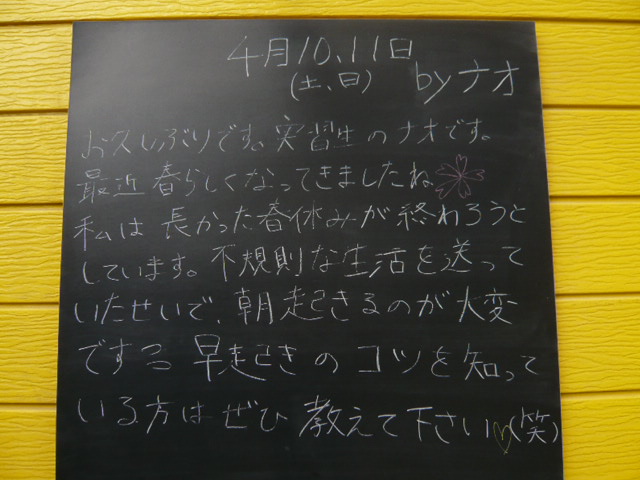 4月10、11日
(土、日) byナオ
お久しぶりです。実習生のナオです。
最近春らしくなってきましたね
私は長かった春休みが終わろうと
しています。不規則な生活を送って
いたせいで、朝起きるのが大変
です 早起きのコツを知って
いる方はぜひ教えて下さい♡(笑)